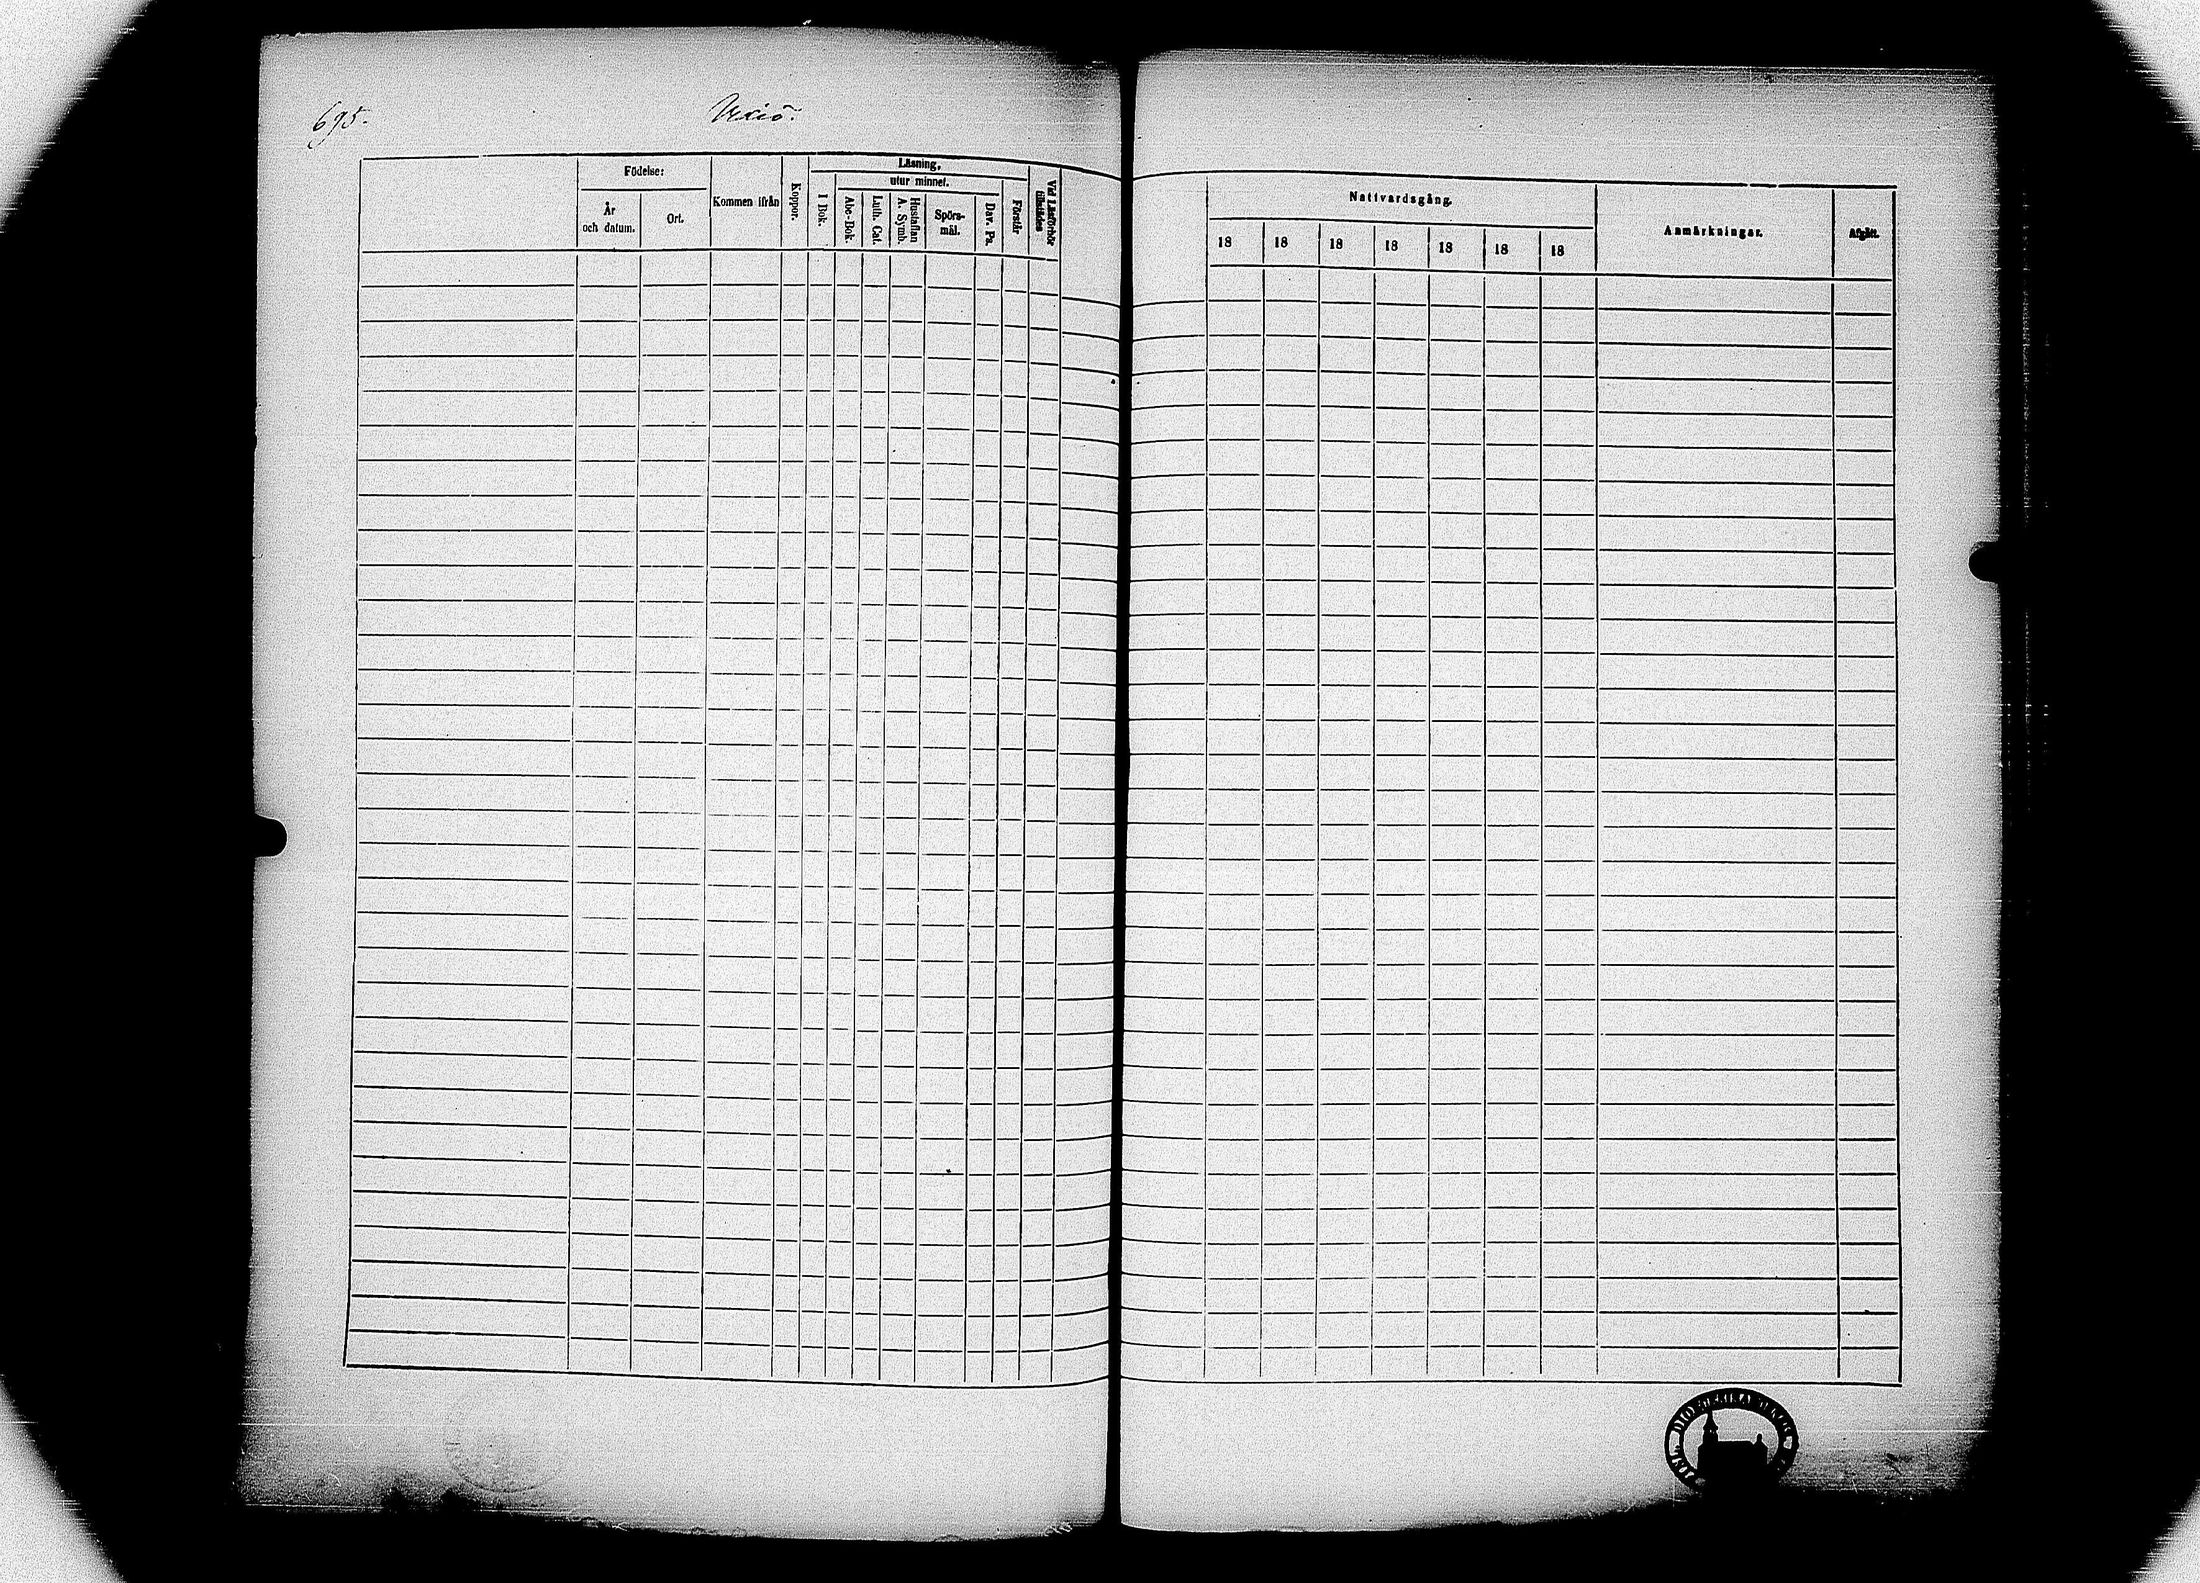 695.
Vexiö.
Födelse:
År
och datum.
Ort.
Kommen ifrån
Koppor.
Läsning,
I Bok.
utur minnet.
Abc-Bok.
Luth. Cat.
Hustaflan
A. Symb.
Spörs-
mål.
Dav. Ps.
Förstår
Vid Läsförhör
tillstädes
Nattvardsgång.
18 18 18 18 18 18 18
Anmärkningar.
Afgått.